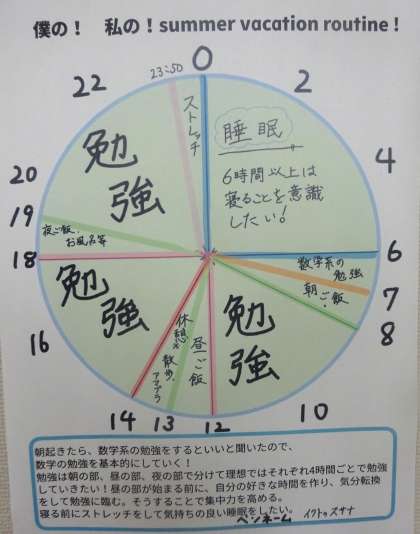 僕の！ 私の！summer vacation routine！
23:50
0
2
4
6
7
8
10
12
13
14
16
18
19
20
22
ストレッチ
睡眠
6時間以上は
寝ることを意識
したい！
数学系の
勉強
朝ご飯
勉
強
昼ご飯
休憩
散歩、
勉
強
夜ご飯、
お風呂等
勉
強
朝起きたら、数学系の勉強をするといいと聞いたので、
数学の勉強を基本的にしていく！
勉強は朝の部、昼の部、夜の部で分けて理想ではそれぞれ4時間ごとで勉強
していきたい！昼の部が始まる前に、自分の好きな時間を作り、気分転換
をして勉強に臨む。そうすることで集中力を高める。
寝る前にストレッチをして気持ちの良い睡眠をしたい。
ペンネーム イクトゥスサナ